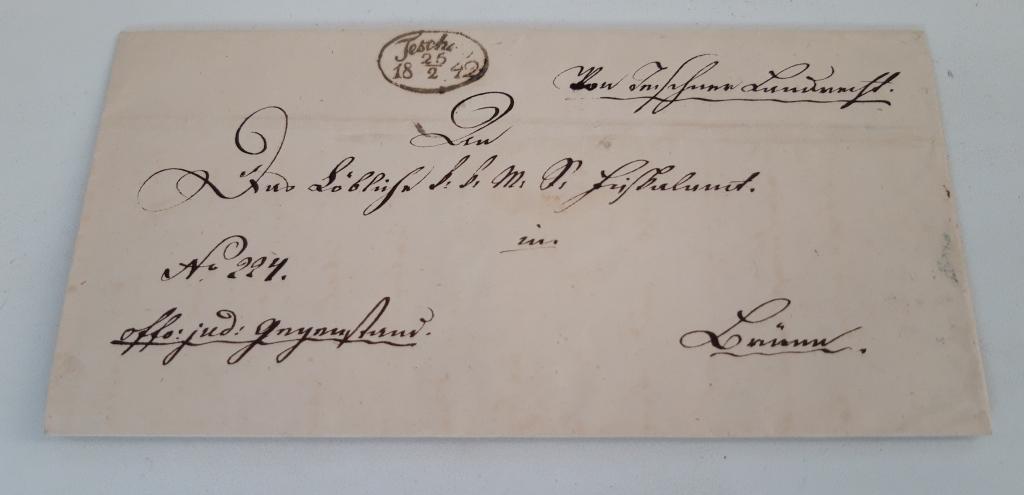 Tesch
25
18 2 42
Von Teschner Landrecht.
An
Das Löbliche k. k. M. S. Fiskalamt.
in
No 224.
offo: jud: Gegenstand.
Brünn.